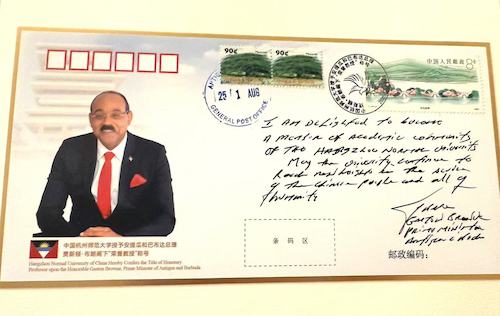 90c 90c
25 1 AUG
GENERAL POST OFFICE
中国人民邮政
I am delighted to become
a member of academic community
of the Hangzhou Normal University
May the University continue to
reach new heights in the service
of the Chinese people and all of
humanity
Gaston Browne
Prime Minister
中国杭州师范大学授予安提瓜和巴布达总理
贾斯顿·布朗阁下“荣誉教授”称号
Hangzhou Normal University of China Hereby Confers the Title of Honorary
Professor upon the Honorable Gaston Browne, Prime Minister of Antigua and Barbuda
条码区
邮政编码：